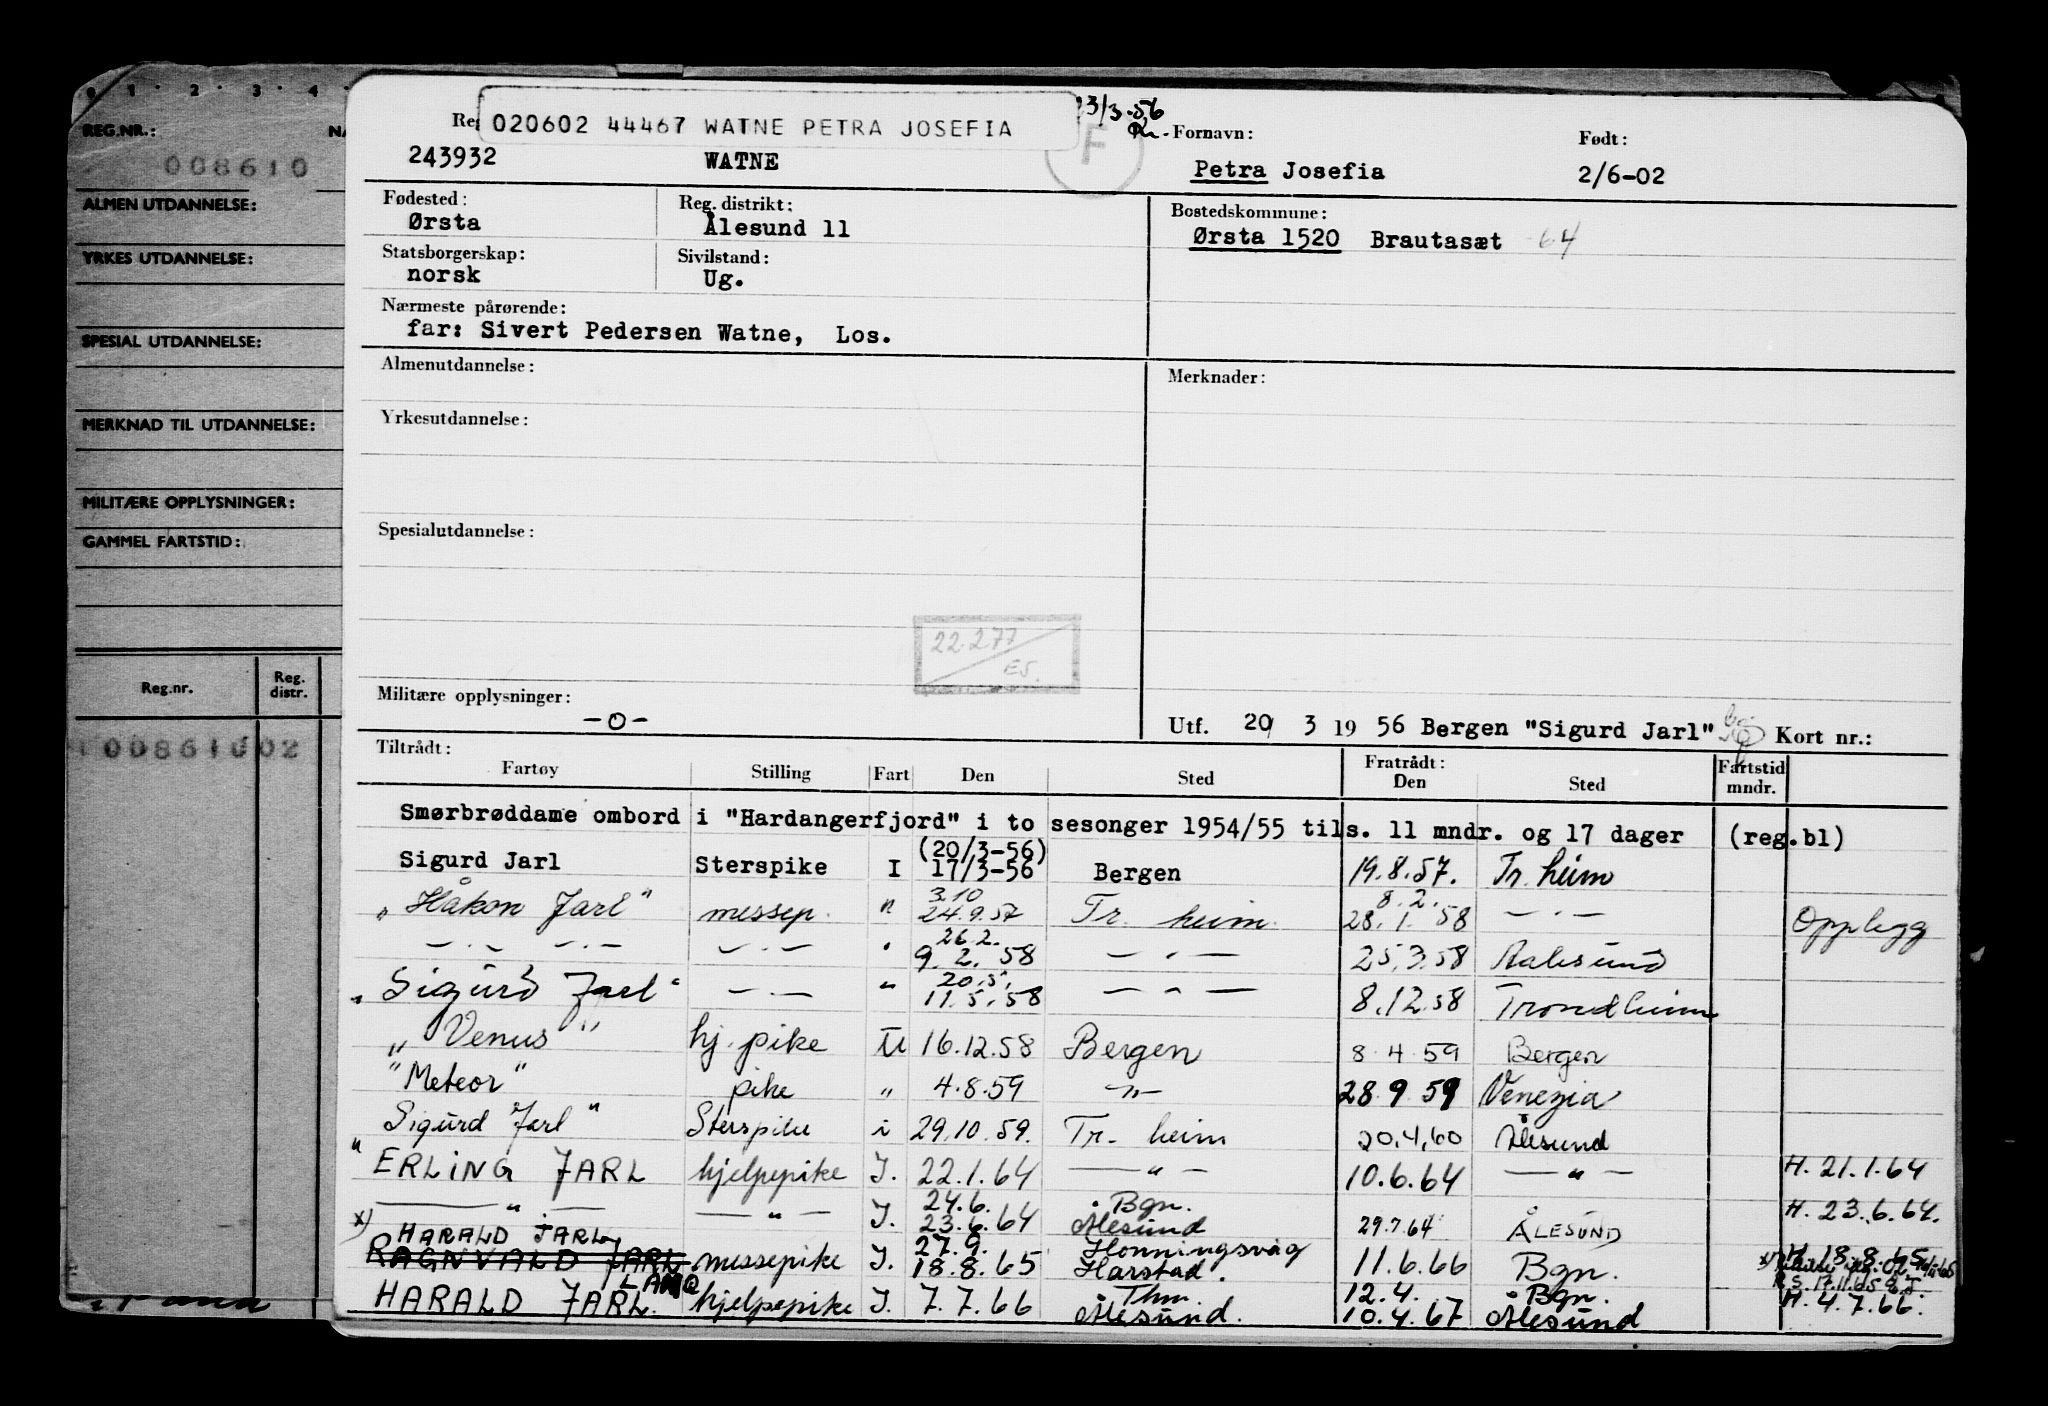 0 1 2 3 4
REG.NR.:
008610
ALMEN UTDANNELSE:
YRKES UTDANNELSE:
SPESIAL UTDANNELSE:
MERKNAD TIL UTDANNELSE:
MILITÆRE OPPLYSNINGER:
GAMMEL FARTSTID:
Reg.nr. Reg. distr.
00861002
020602 44467 WATNE PETRA JOSEFIA
23/3-56
F
Fornavn: Født:
243932 WATNE Petra Josefia 2/6-02
Fødested: Reg. distrikt: Bostedskommune:
Ørsta Ålesund 11 Ørsta 1520 Brautasæt 64
Statsborgerskap: Sivilstand:
norsk Ug.
Nærmeste pårørende:
far: Sivert Pedersen Watne, Los.
Almenutdannelse: Merknader:
Yrkesutdannelse:
Spesialutdannelse:
22.2.77
ES.
Militære opplysninger:
-0-
Utf. 20 3 19 56 Bergen "Sigurd Jarl" Kort nr.:
Tiltrådt: Fratrådt: Fartstid
Fartøy Stilling Fart Den Sted Den Sted mndr.
Smørbrøddame ombord i "Hardangerfjord" i to sesonger 1954/55 tils. 11 mndr. og 17 dager (reg.bl)
(20/3-56)
Sigurd Jarl Sterspike I 17/3-56 Bergen 19.8.57. Tr.heim
3.10 8.2.
"Håkon Jarl" messep. " 24.9.57 Tr. heim 28.1.58 — " — Opplegg
26.2.
— " — — " — — " — " 9.2.58 — " — 25.3.58 Aalesund
20.5.
"Sigurd Jarl" — " — " 11.5.58 — " — 8.12.58 Trondheim
"Venus" hj. pike U 16.12.58 Bergen 8.4.59 Bergen
"Meteor" pike " 4.8.59 — " — 28.9.59 Venezia
Sigurd Jarl" Sterspike i 29.10.59. Tr. heim 20.4.60 Ålesund
"ERLING JARL hjelpepike I. 22.1.64 — " — 10.6.64 — " — H. 21.1.64
24.6. Bgn.
— " — — " — I. 23.6.64 Ålesund 29.7.64 ÅLESUND H. 23.6.64.
x) HARALD JARL 27.9. Honningsvåg H. 18.8.65
RAGNVALD JARL messepike I. 18.8.65 Harstad. 11.6.66 Bgn.
R.S. 17.11.65
LANG Thm 12.4. Bgn.
HARALD JARL. hjelpepike I. 7.7.66 Ålesund. 10.4.67 Ålesund H. 4.7.66.